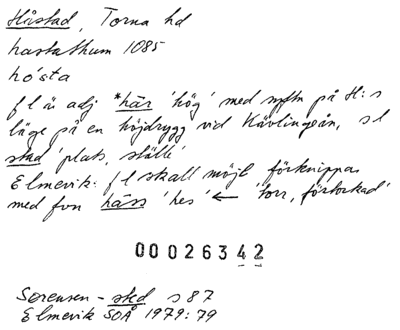 Håstad, Torna hd
hastathum 1085
hósta
fl är adj *hār 'hög' med syftn på H:s
läge på en höjdrygg vid Kävlingeån, sl
stad 'plats, ställe'
Elmevik: fl skall möjl förknippas
med fvn háss 'hes' ← 'torr, förtorkad'
00026342
Sørensen -sted s 87
Elmevik SOÅ 1979:79